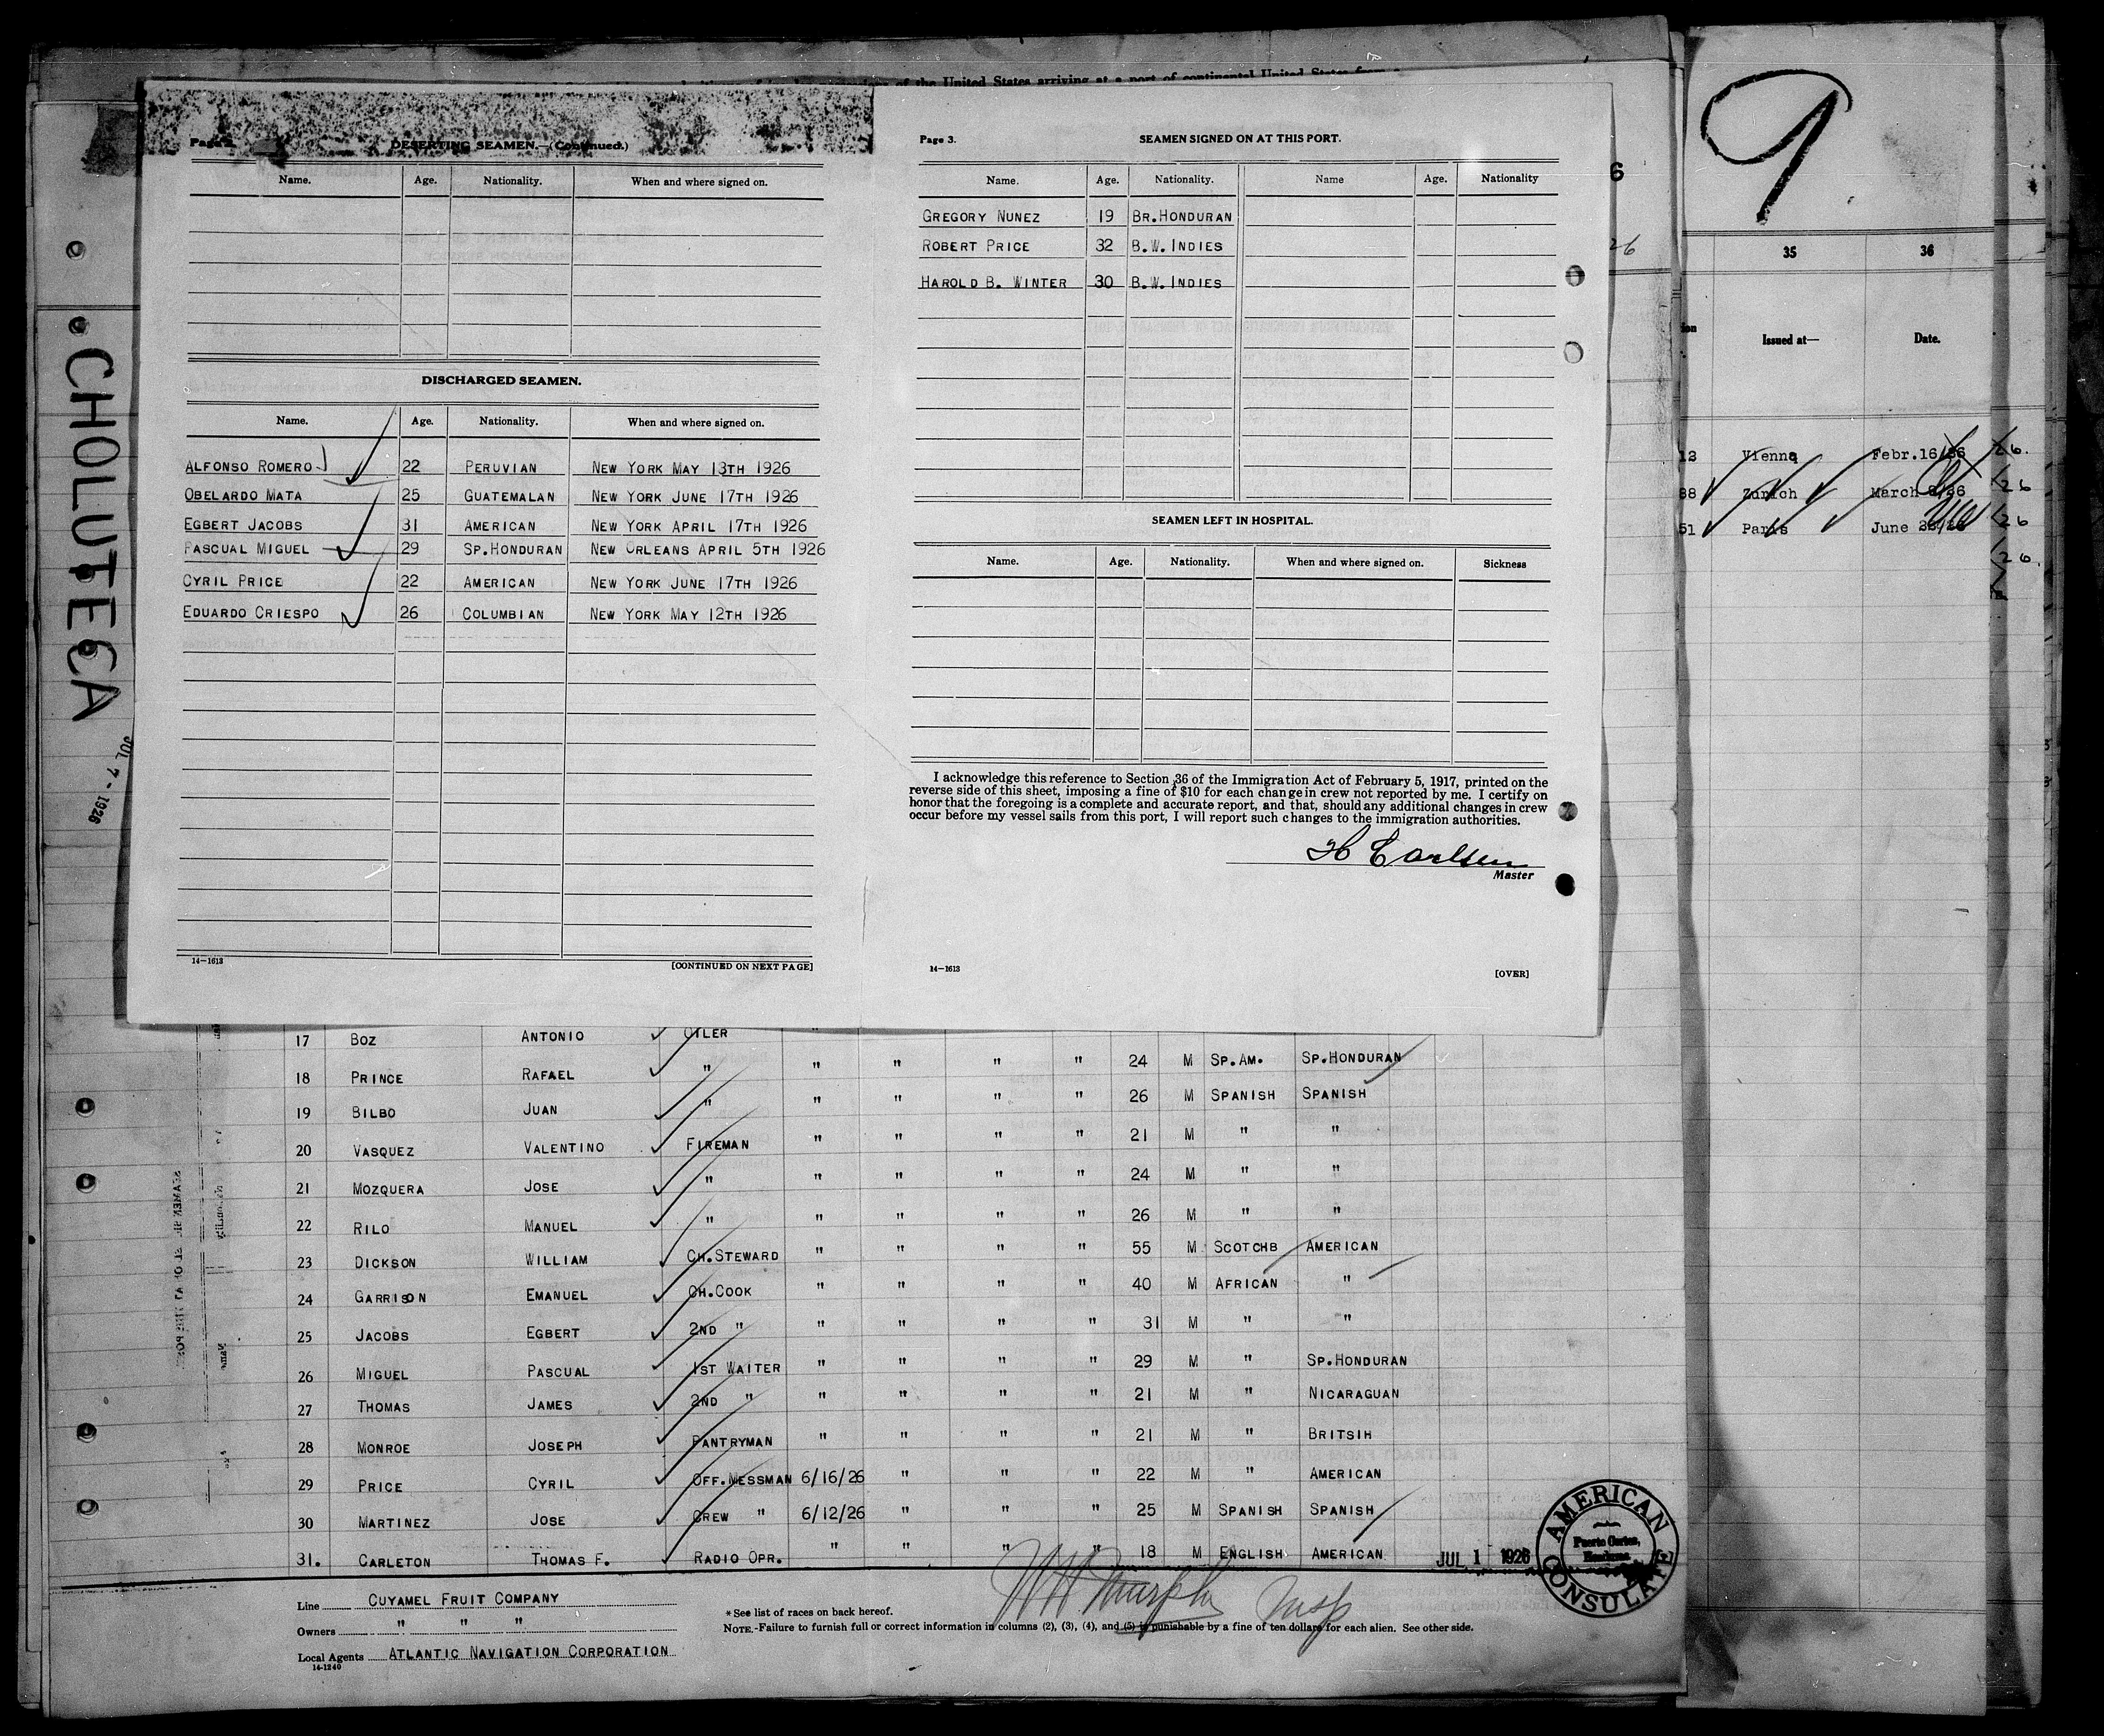 of the United States arriving at a port of continental United States from
Page
DESERTING SEAMEN.—(Continued.)
Name. Age. Nationality. When and where signed on.
DISCHARGED SEAMEN.
Name. Age. Nationality. When and where signed on.
ALFONSO ROMERO 22 PERUVIAN NEW YORK MAY 13TH 1926
OBELARDO MATA 25 GUATEMALAN NEW YORK JUNE 17TH 1926
EGBERT JACOBS 31 AMERICAN NEW YORK APRIL 17TH 1926
PASCUAL MIGUEL 29 SP.HONDURAN NEW ORLEANS APRIL 5TH 1926
CYRIL PRICE 22 AMERICAN NEW YORK JUNE 17TH 1926
EDUARDO CRIESPO 26 COLUMBIAN NEW YORK MAY 12TH 1926
14—1613 [CONTINUED ON NEXT PAGE]
Page 3. SEAMEN SIGNED ON AT THIS PORT.
Name. Age. Nationality. Name Age. Nationality
GREGORY NUNEZ 19 BR.HONDURAN
ROBERT PRICE 32 B.W. INDIES
HAROLD B. WINTER 30 B.W. INDIES
SEAMEN LEFT IN HOSPITAL.
Name. Age. Nationality. When and where signed on. Sickness
I acknowledge this reference to Section 36 of the Immigration Act of February 5, 1917, printed on the
reverse side of this sheet, imposing a fine of $10 for each change in crew not reported by me. I certify on
honor that the foregoing is a complete and accurate report, and that, should any additional changes in crew
occur before my vessel sails from this port, I will report such changes to the immigration authorities.
H Carlsen
Master
14—1613 [OVER]
CHOLUTECA
JUL 7 - 1926
6
26
9
35 36
Issued at— Date.
13 Vienna Febr.16/26 26.
88 Zurich March 26
51 Paris June 26
26.
17 BOZ ANTONIO OILER "
18 PRINCE RAFAEL " " " " " 24 M SP.AM. SP.HONDURAN
19 BILBO JUAN " " " " " 26 M SPANISH SPANISH
20 VASQUEZ VALENTINO FIREMAN " " " " 21 M " "
21 MOZQUERA JOSE " " " " " 24 M " "
22 RILO MANUEL " " " " " 26 M " "
23 DICKSON WILLIAM CH.STEWARD " " " " 55 M SCOTCHB AMERICAN
24 GARRISON EMANUEL CH.COOK " " " " 40 M AFRICAN "
25 JACOBS EGBERT 2ND " " " " " 31 M " "
26 MIGUEL PASCUAL 1ST WAITER " " " " 29 M " SP.HONDURAN
27 THOMAS JAMES 2ND " " " " " 21 M " NICARAGUAN
28 MONROE JOSEPH PANTRYMAN " " " " 21 M " BRITSIH
29 PRICE CYRIL OFF.MESSMAN 6/16/26 " " " 22 M " AMERICAN
30 MARTINEZ JOSE CREW " 6/12/26 " " " 25 M SPANISH SPANISH
31. CARLETON THOMAS F. RADIO OPR. " " " " 18 M ENGLISH AMERICAN
JUL 1 1926
AMERICAN CONSULATE
Puerto Cortes,
Honduras
Line CUYAMEL FRUIT COMPANY
Owners " " "
Local Agents ATLANTIC NAVIGATION CORPORATION
14-1240
*See list of races on back hereof.
W H Murphy Insp
NOTE.-Failure to furnish full or correct information in columns (2), (3), (4), and (5) is punishable by a fine of ten dollars for each alien. See other side.